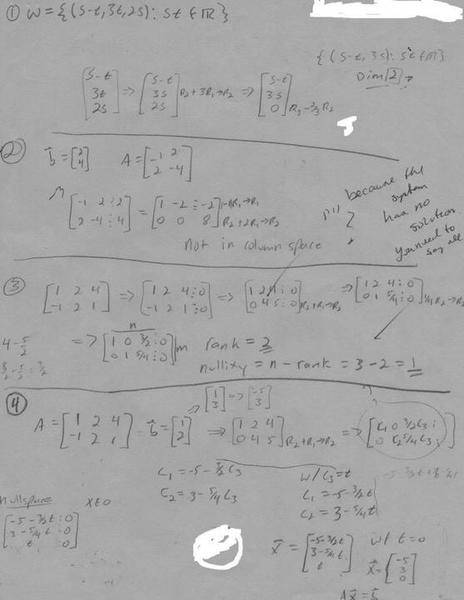 ① W = {(s-t, 3t, 2s) : s t ∈ ℝ}
{(s-t, 3s) : s t ∈ ℝ}
Dim [2]
[s-t; 3t; 2s] ⇒ [s-t; 3s; 2s] R₂+3R₁→R₂ ⇒ [s-t; 3s; 0] R₃-⅔R₂
② b = [2; 4] A = [-1 2; 2 -4]
[-1 2 ⋮ 2; 2 -4 ⋮ 4] = [1 -2 ⋮ -2; 0 0 8] -1R₁→R₁ R₂+2R₁→R₂
not in column space
because the
system
has no
solution
you need to
say all
③ [1 2 4; -1 2 1] ⇒ [1 2 4 ⋮ 0; -1 2 1 ⋮ 0] ⇒ [1 2 4 ⋮ 0; 0 4 5 ⋮ 0] R₂+R₁→R₂ ⇒ [1 2 4 ⋮ 0; 0 1 5/4 ⋮ 0] ¼R₂→R₂
4 - 5/2
8/2 - 5/2 = 3/2
n
⇒ [1 0 3/2 ⋮ 0; 0 1 5/4 ⋮ 0] m rank = 2
nullity = n - rank = 3 - 2 = 1
④ ⇒ [1; 3] ⇒ [-5; 3]
A = [1 2 4; -1 2 1] b = [1; 2] ⇒ [1 2 4; 0 4 5] R₂+R₁→R₂ ⇒ [C₁ 0 3/2C₃; 0 C₂ 5/4C₃]
C₁ = -5 - 3/2C₃ w/ C₃ = t
C₂ = 3 - 5/4C₃ C₁ = -5 - 3/2t
C₂ = 3 - 5/4t
Nullspace x t=0
[-5-3/2t ⋮ 0; 3-5/4t ⋮ 0; t ⋮ 0]
x = [-5-3/2t; 3-5/4t; t] w/ t = 0
x = [-5; 3; 0]
Ax = b